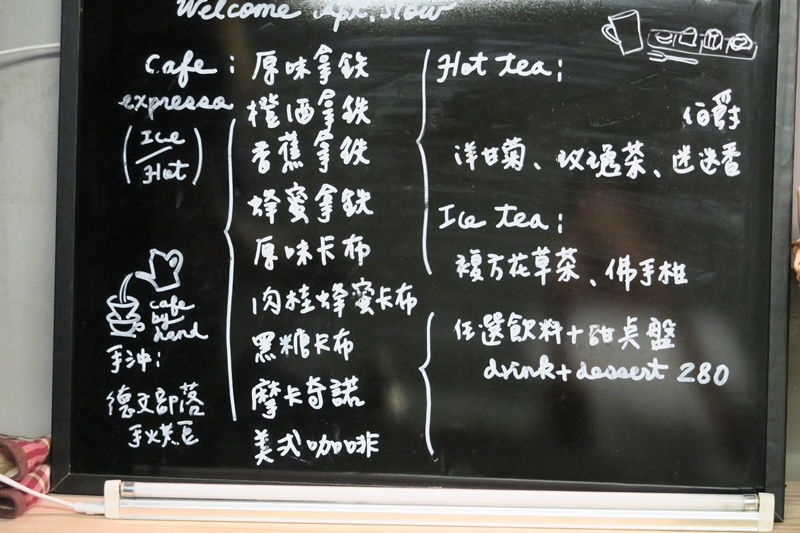 Welcome Apt. Slow
Cafe:
expressa
(Ice/Hot)
原味拿鉄
橙酒拿鉄
香蕉拿鉄
蜂蜜拿鉄
原味卡布
肉桂蜂蜜卡布
黑糖卡布
摩卡奇諾
美式咖啡
cafe
by
hand
手沖:
德文部落
手火烘豆
Hot tea:
伯爵
洋甘菊、玫瑰茶、迷迭香
Ice tea:
複方花草茶、佛手柑
任選飲料+甜点盤
drink+dessert 280